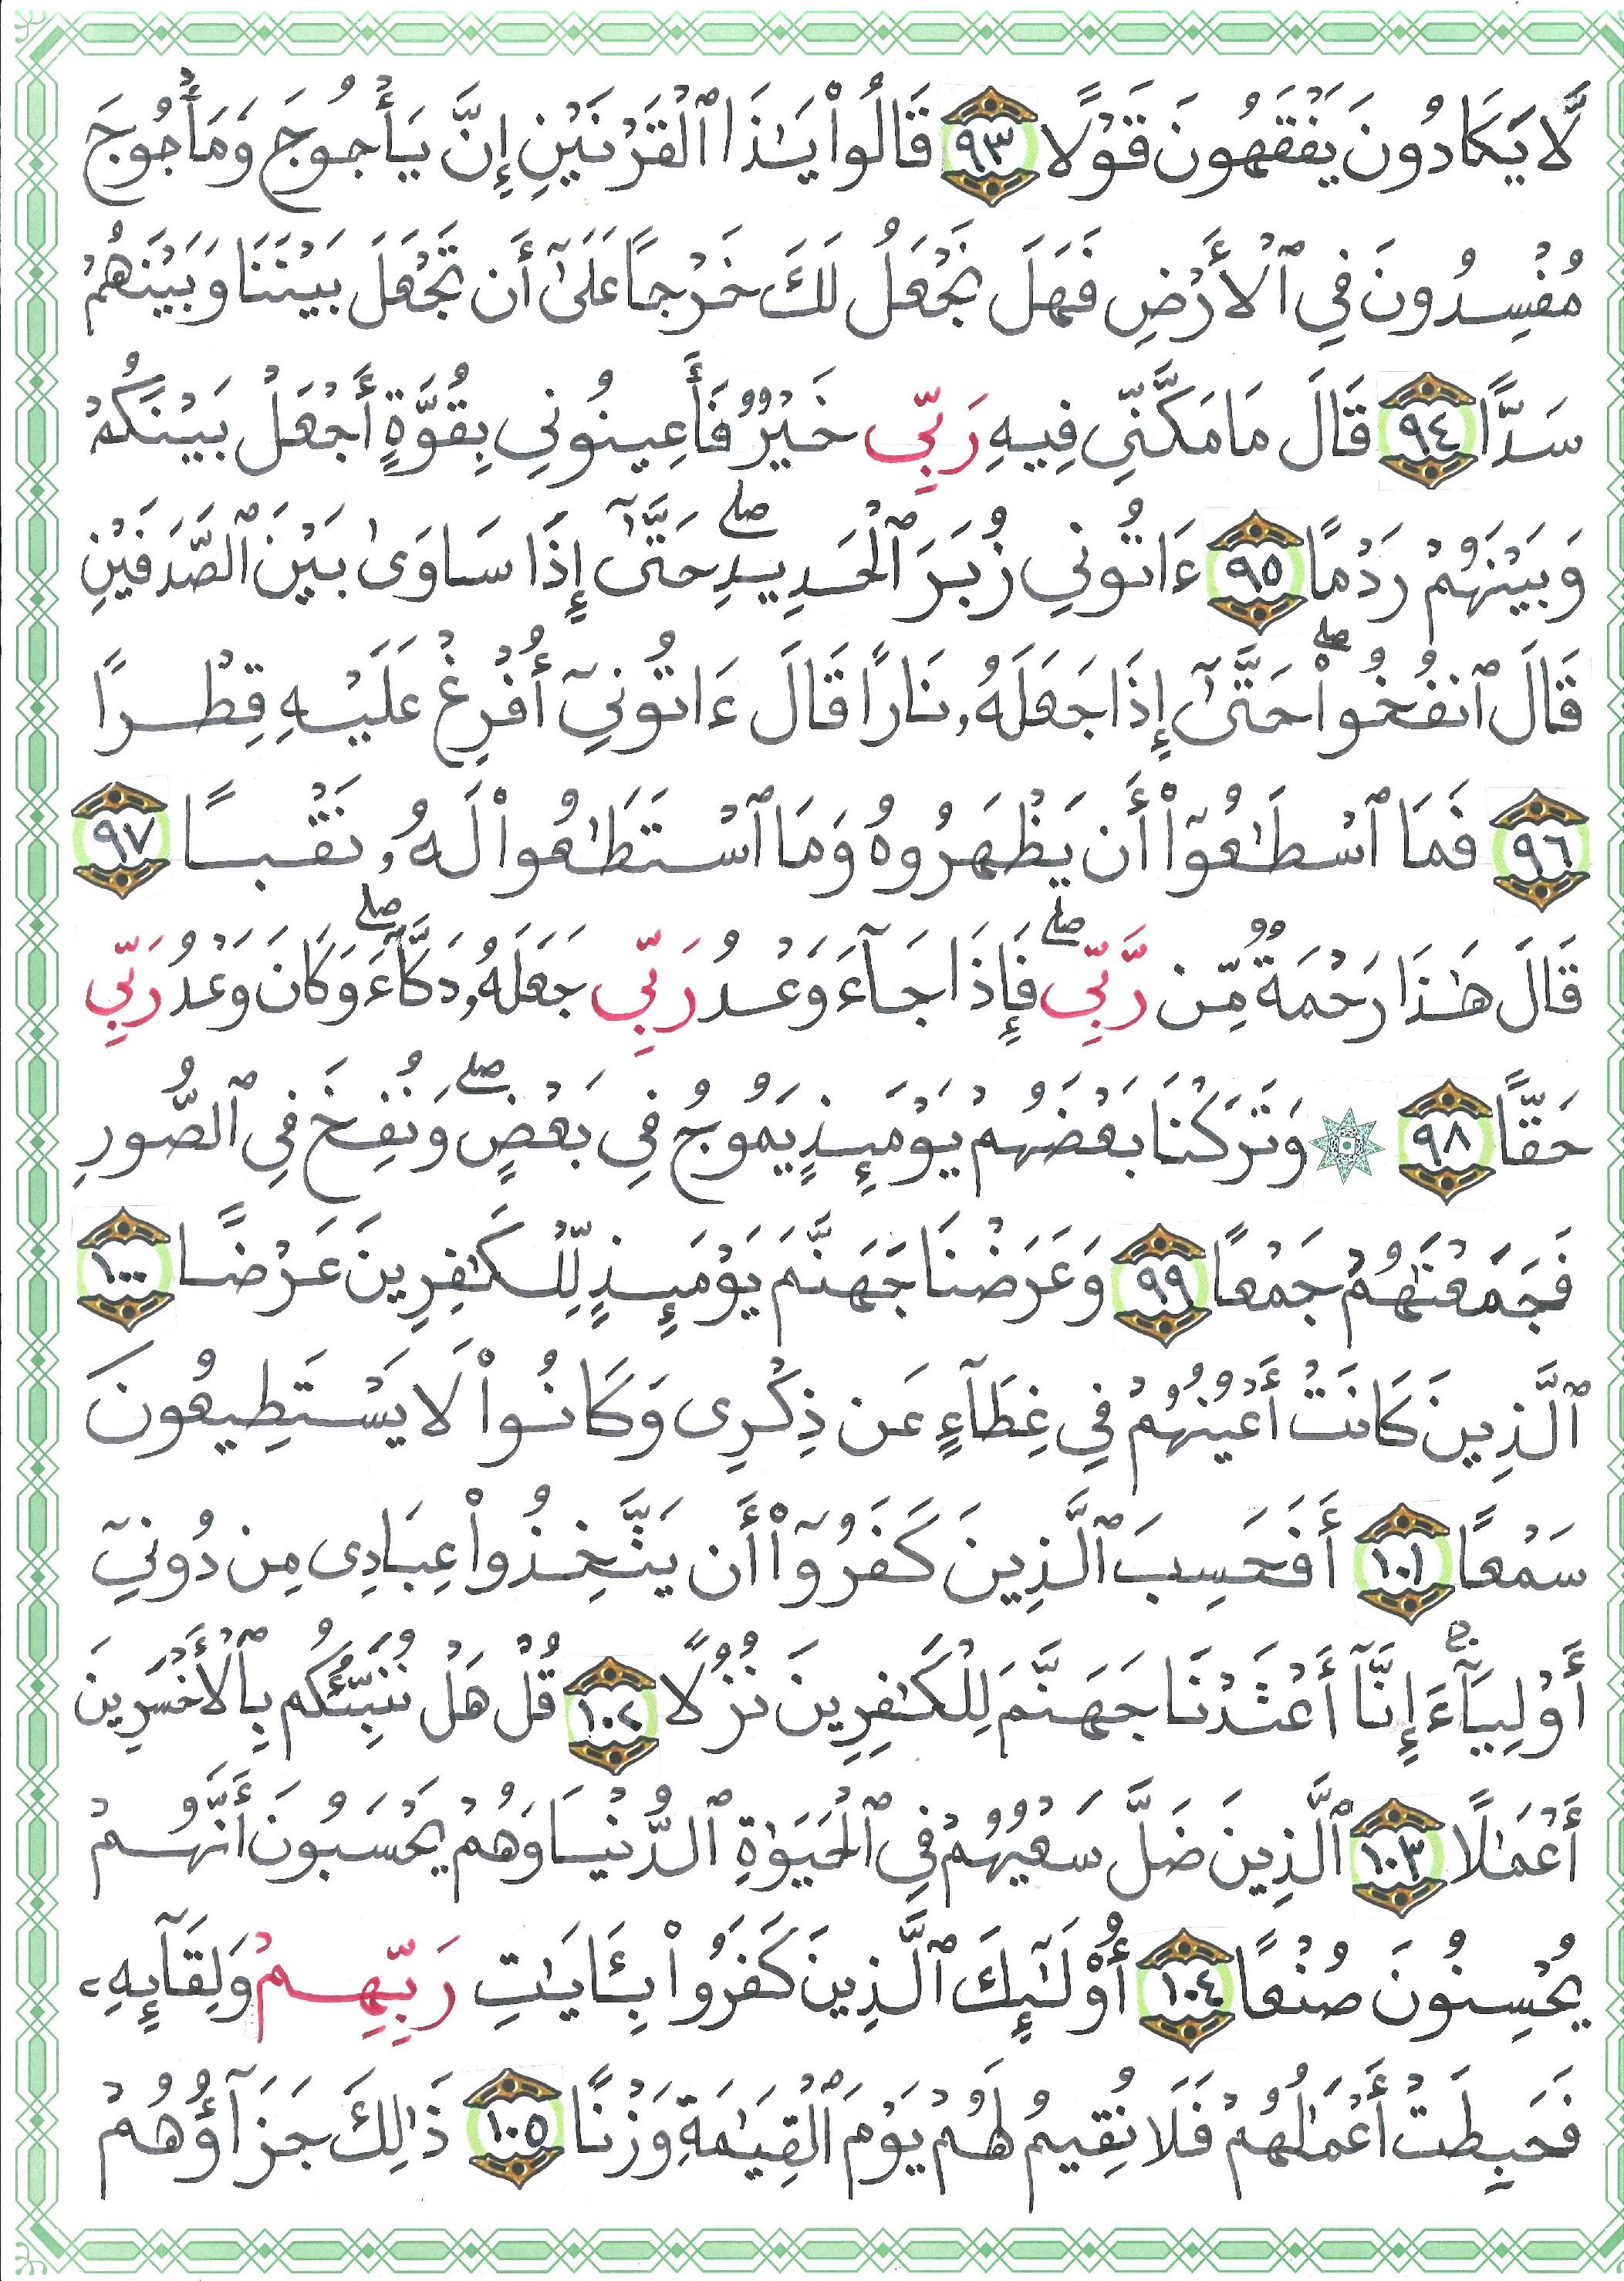 لَّا يَكَادُونَ يَفْقَهُونَ قَوْلًا ٩٣ قَالُوا۟ يَـٰذَا ٱلْقَرْنَيْنِ إِنَّ يَأْجُوجَ وَمَأْجُوجَ
مُفْسِدُونَ فِي ٱلْأَرْضِ فَهَلْ نَجْعَلُ لَكَ خَرْجًا عَلَىٰٓ أَن تَجْعَلَ بَيْنَنَا وَبَيْنَهُمْ
سَدًّا ٩٤ قَالَ مَا مَكَّنِّى فِيهِ رَبِّى خَيْرٌ فَأَعِينُونِى بِقُوَّةٍ أَجْعَلْ بَيْنَكُمْ
وَبَيْنَهُمْ رَدْمًا ٩٥ ءَاتُونِي زُبَرَ ٱلْحَدِيدِ ۖ حَتَّىٰٓ إِذَا سَاوَىٰ بَيْنَ ٱلصَّدَفَيْنِ
قَالَ ٱنفُخُوا۟ ۖ حَتَّىٰٓ إِذَا جَعَلَهُۥ نَارًا قَالَ ءَاتُونِىٓ أُفْرِغْ عَلَيْهِ قِطْرًا
٩٦ فَمَا ٱسْطَـٰعُوٓا۟ أَن يَظْهَرُوهُ وَمَا ٱسْتَطَـٰعُوا۟ لَهُۥ نَقْبًا ٩٧
قَالَ هَـٰذَا رَحْمَةٌ مِّن رَّبِّى ۖ فَإِذَا جَآءَ وَعْدُ رَبِّى جَعَلَهُۥ دَكَّآءَ ۖ وَكَانَ وَعْدُ رَبِّى
حَقًّا ٩٨ ۞ وَتَرَكْنَا بَعْضَهُمْ يَوْمَئِذٍ يَمُوجُ فِى بَعْضٍ ۖ وَنُفِخَ فِى ٱلصُّورِ
فَجَمَعْنَـٰهُمْ جَمْعًا ٩٩ وَعَرَضْنَا جَهَنَّمَ يَوْمَئِذٍ لِّلْكَـٰفِرِينَ عَرْضًا ١٠٠
ٱلَّذِينَ كَانَتْ أَعْيُنُهُمْ فِى غِطَآءٍ عَن ذِكْرِى وَكَانُوا۟ لَا يَسْتَطِيعُونَ
سَمْعًا ١٠١ أَفَحَسِبَ ٱلَّذِينَ كَفَرُوٓا۟ أَن يَتَّخِذُوا۟ عِبَادِى مِن دُونِىٓ
أَوْلِيَآءَ ۚ إِنَّآ أَعْتَدْنَا جَهَنَّمَ لِلْكَـٰفِرِينَ نُزُلًا ١٠٢ قُلْ هَلْ نُنَبِّئُكُم بِٱلْأَخْسَرِينَ
أَعْمَـٰلًا ١٠٣ ٱلَّذِينَ ضَلَّ سَعْيُهُمْ فِى ٱلْحَيَوٰةِ ٱلدُّنْيَا وَهُمْ يَحْسَبُونَ أَنَّهُمْ
يُحْسِنُونَ صُنْعًا ١٠٤ أُو۟لَـٰٓئِكَ ٱلَّذِينَ كَفَرُوا۟ بِـَٔايَـٰتِ رَبِّهِمْ وَلِقَآئِهِۦ
فَحَبِطَتْ أَعْمَـٰلُهُمْ فَلَا نُقِيمُ لَهُمْ يَوْمَ ٱلْقِيَـٰمَةِ وَزْنًا ١٠٥ ذَٰلِكَ جَزَآؤُهُمْ